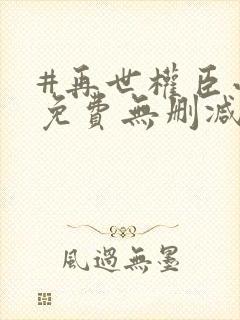 #再世權臣
免費無刪減
風過無墨